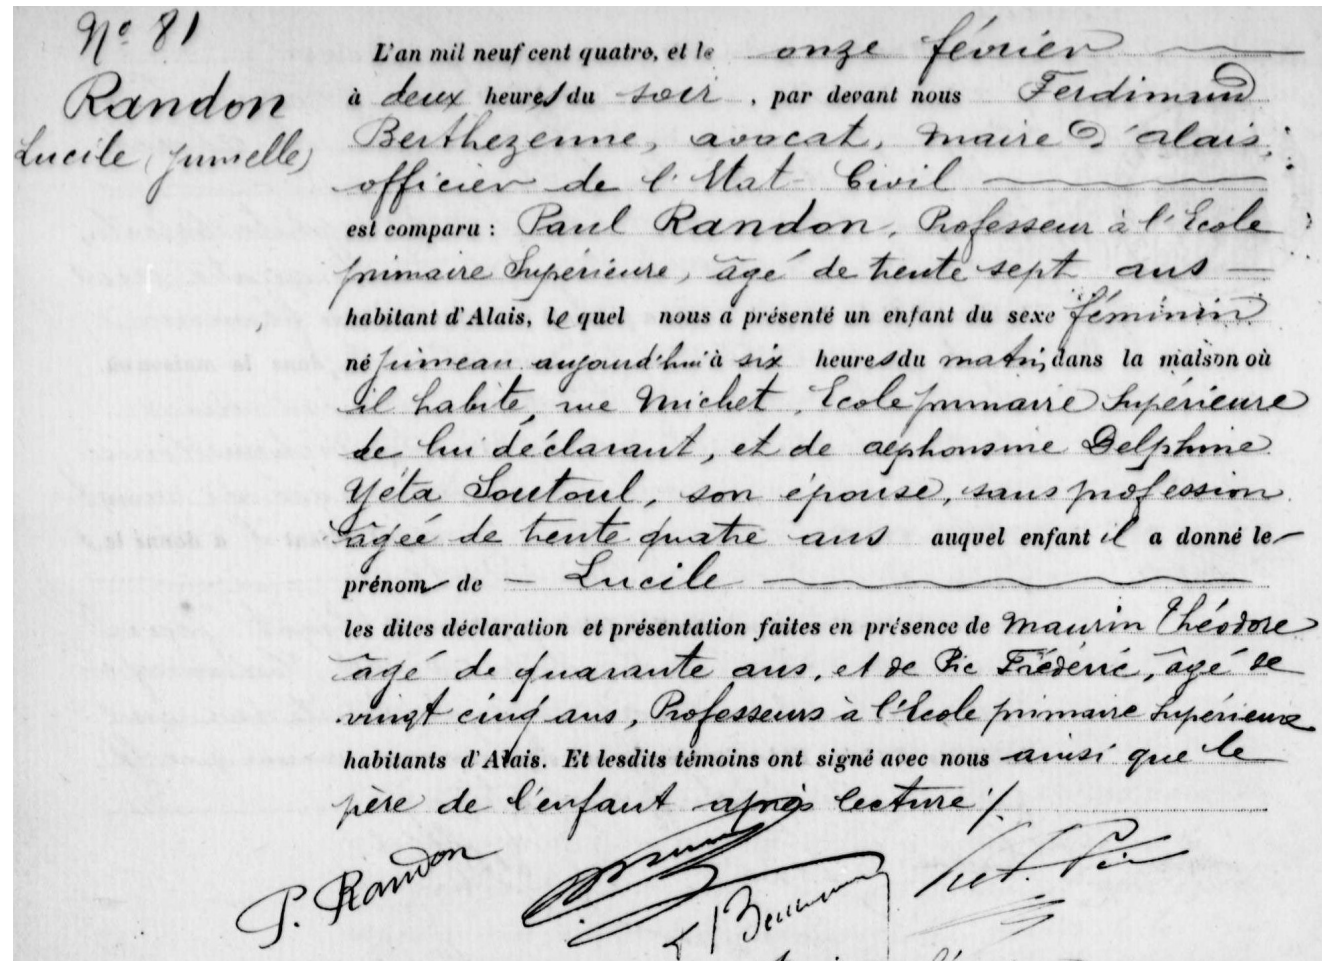 N° 81
Randon
Lucile (jumelle)
L'an mil neuf cent quatre, et le onze février
à deux heures du soir, par devant nous Ferdinand
Berthezenne, avocat, Maire d'Alais,
officier de l'Etat-Civil
est comparu : Paul Randon, Professeur à l'Ecole
primaire Supérieure, âgé de trente sept ans
habitant d'Alais, lequel nous a présenté un enfant du sexe féminin
né jumeau aujourd'hui à six heures du matin, dans la maison où
il habite, rue Michet, Ecole primaire Supérieure
de lui déclarant, et de Alphonsine Delphine
Yéta Soutoul, son épouse, sans profession
âgée de trente quatre ans auquel enfant il a donné le
prénom de Lucile
les dites déclaration et présentation faites en présence de Maurin Théodore
âgé de quarante ans, et de Pic Frédéric, âgé de
vingt cinq ans, Professeurs à l'Ecole primaire Supérieure
habitants d'Alais. Et lesdits témoins ont signé avec nous ainsi que le
père de l'enfant après lecture ./.
P. Randon
Pic